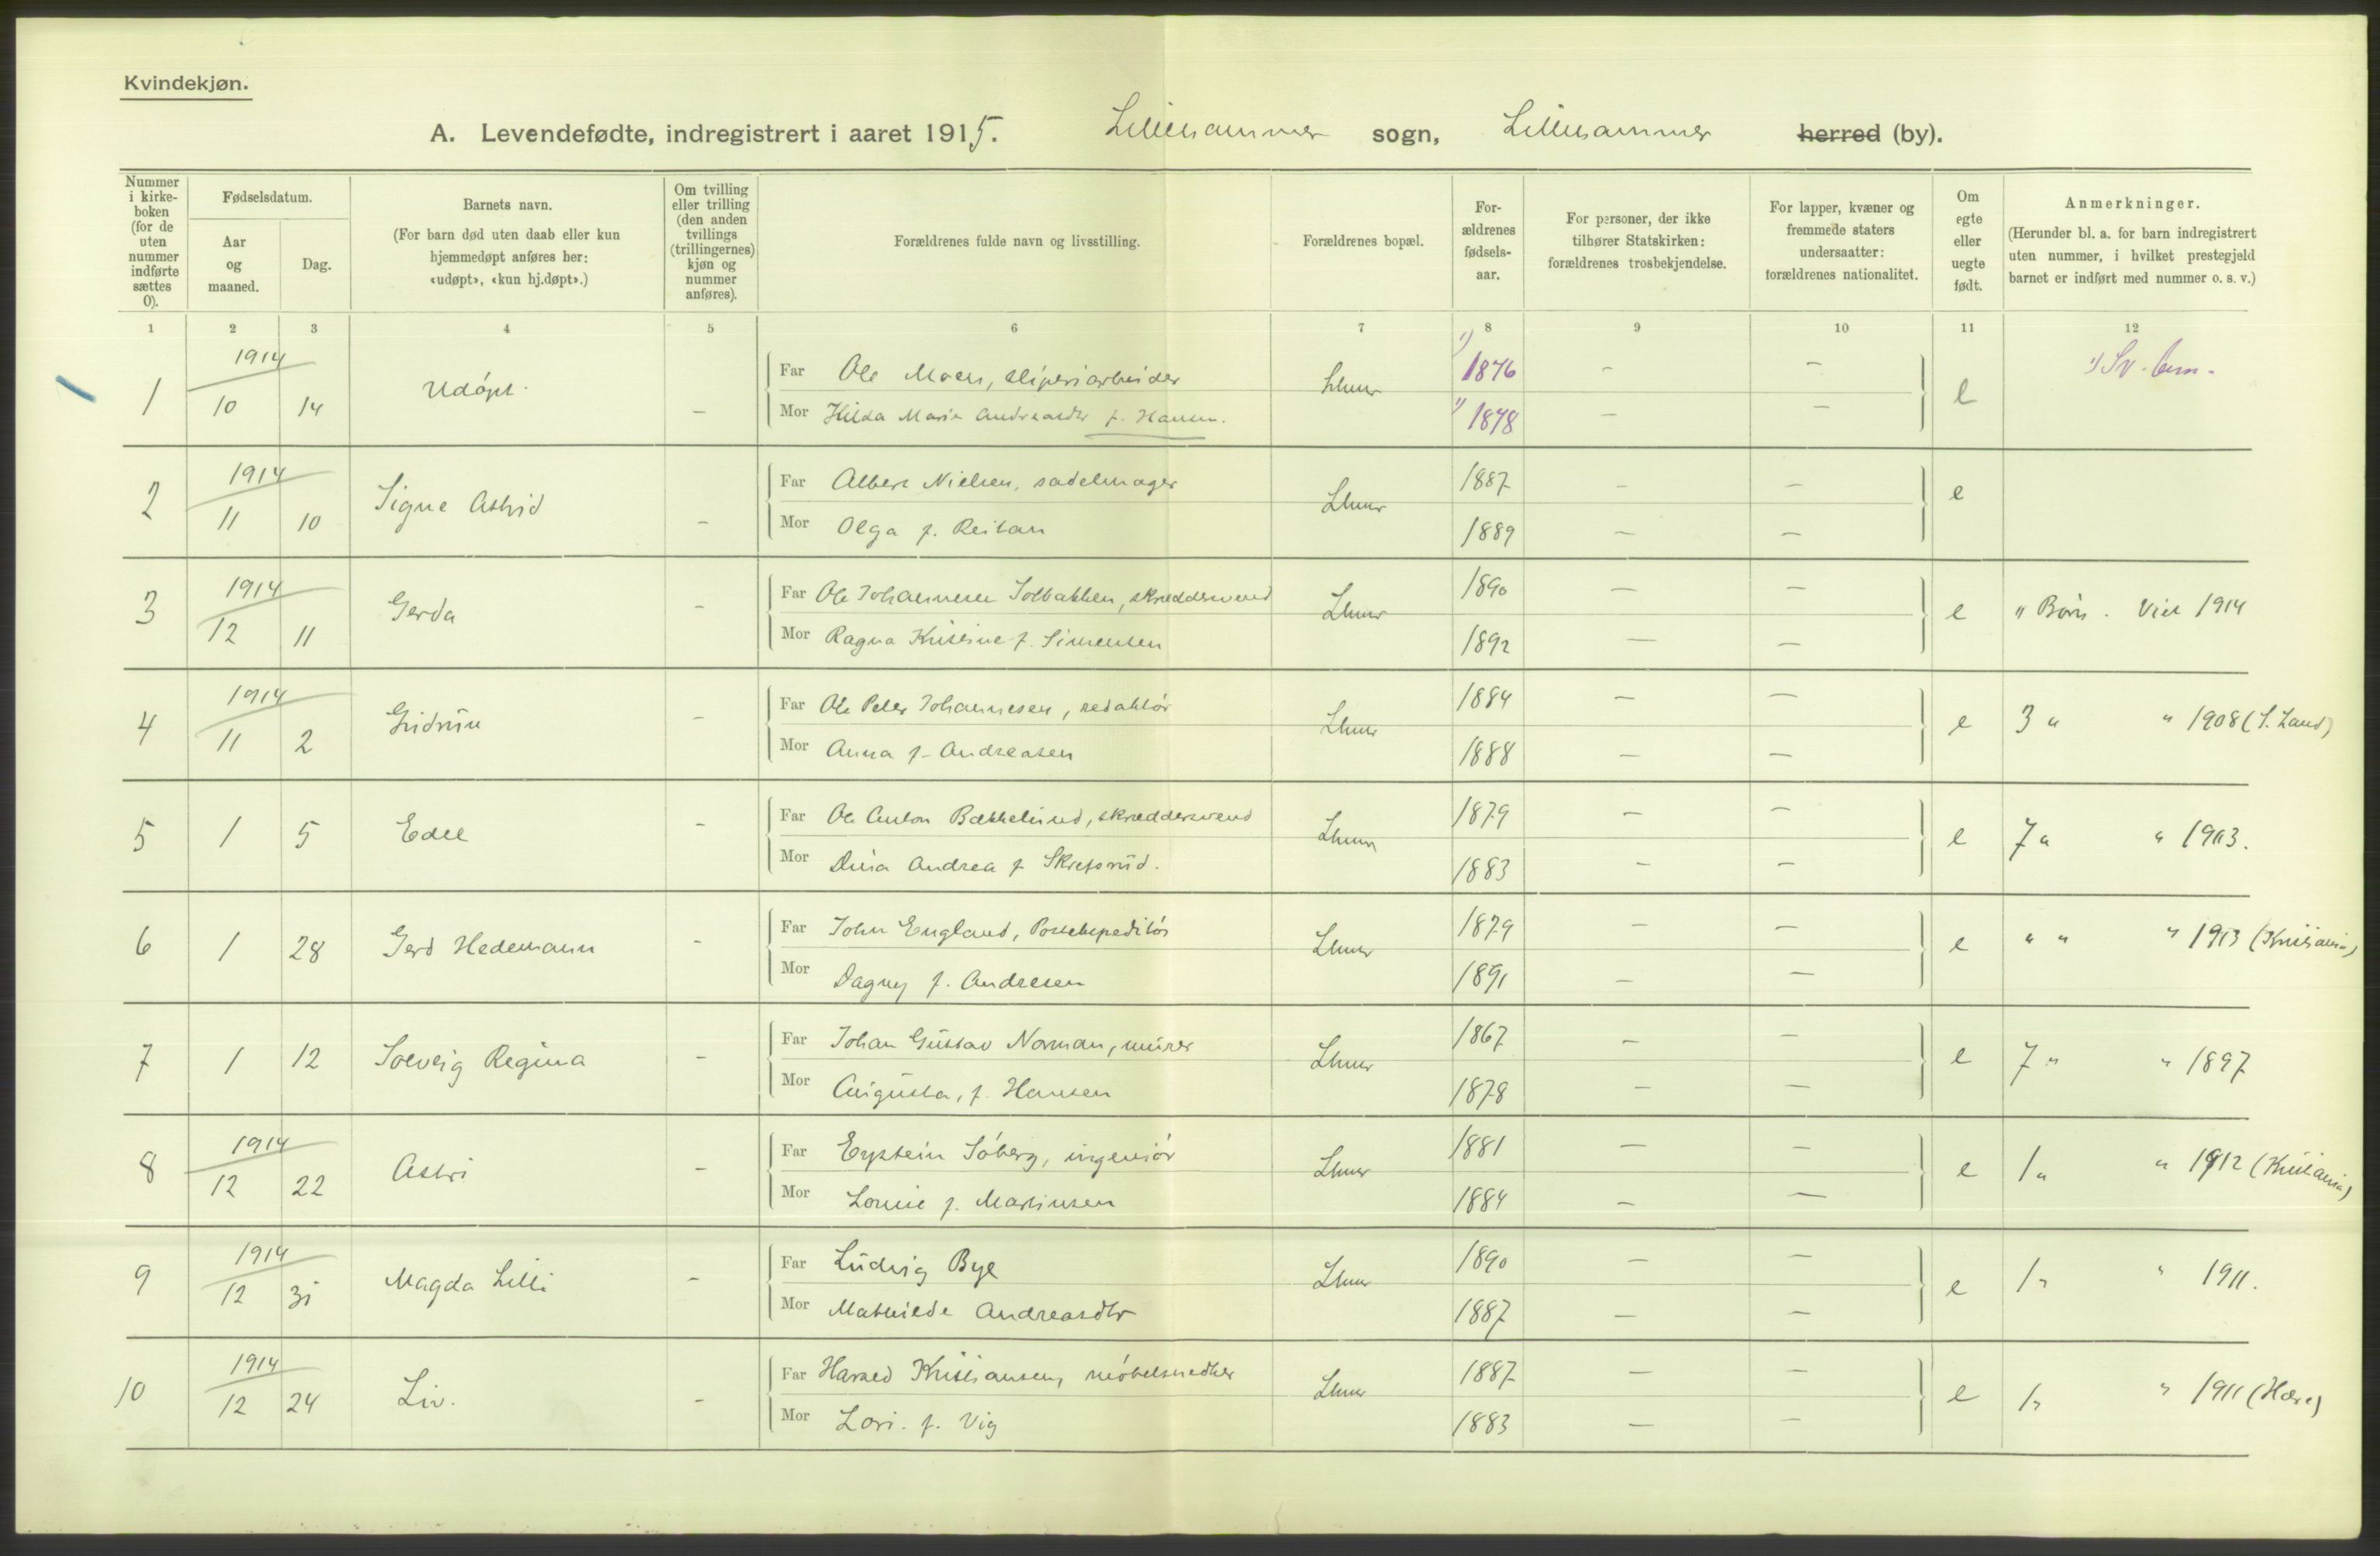 Kvindekjøn.
A. Levendefødte, indregistrert i aaret 1915. Lillehammer sogn, Lillehammer herred (by).
Nummer i kirke-boken (for de uten nummer indførte sættes 0).
Fødselsdatum.
Aar og maaned.
Dag.
Barnets navn.
(For barn død uten daab eller kun hjemmedøpt anføres her: «udøpt», «kun hj.døpt».)
Om tvilling eller trilling (den anden tvillings (trillingernes) kjøn og nummer anføres).
Forældrenes fulde navn og livsstilling.
Forældrenes bopæl.
For-ældrenes fødsels-aar.
For personer, der ikke tilhører Statskirken: forældrenes trosbekjendelse.
For lapper, kvæner og fremmede staters undersaatter: forældrenes nationalitet.
Om egte eller uegte født.
Anmerkninger.
(Herunder bl. a. for barn indregistrert uten nummer, i hvilket prestegjeld barnet er indført med nummer o. s. v.)
1 2 3 4 5 6 7 8 9 10 11 12
1 1914 10 14 Udøpt. - Far Ole Moen, sliperiarbeider Lhmr 1) 1876 - - e 1) Sv.
Mor Hilda Marie Andreasdtr f. Hansen. 1) 1878 - -
2 1914 11 10 Signe Astrid - Far Albert Nielsen, sadelmager Lhmr 1887 - - e
Mor Olga f. Reitan 1889 - -
3 1914 12 11 Gerda - Far Ole Johannesen Solbakken, skræddersvend Lhmr 1890 - - e " Børn. Viet 1914
Mor Ragna Kristine f. Simensen 1892 - -
4 1914 11 2 Gudrun - Far Ole Peter Johannesen, redaktør Lhmr 1884 - - e 3 " " 1908 (S. Land)
Mor Anna f. Andreasen 1888 - -
5 1 5 Edel - Far Ole Anton Bækkelund, skræddersvend Lhmr 1879 - - e 7 " " 1903.
Mor Dina Andrea f Skrefsrud. 1883 - -
6 1 28 Gerd Hedemann - Far John England, Postekspeditør Lhmr 1879 - - e " " " 1913 (Kristiania)
Mor Dagny f. Andresen 1891 - -
7 1 12 Solveig Regina - Far Johan Gustav Norman, murer Lhmr 1867 - - e 7 " " 1897
Mor Augusta, f. Hansen 1878 - -
8 1914 12 22 Astri - Far Eystein Søberg, ingeniør Lhmr 1881 - - e 1 " " 1912 (Kristiania)
Mor Louise f. Martinsen 1884 - -
9 1914 12 31 Magda Lilli - Far Ludvig Bye Lhmr 1890 - - e 1 " " 1911.
Mor Mathilde Andreasdtr 1887 - -
10 1914 12 24 Liv. - Far Harald Kristiansen, møbelsnedker Lhmr 1887 - - e 1 " " 1911
Mor Lovi. f. Vig 1883 - -